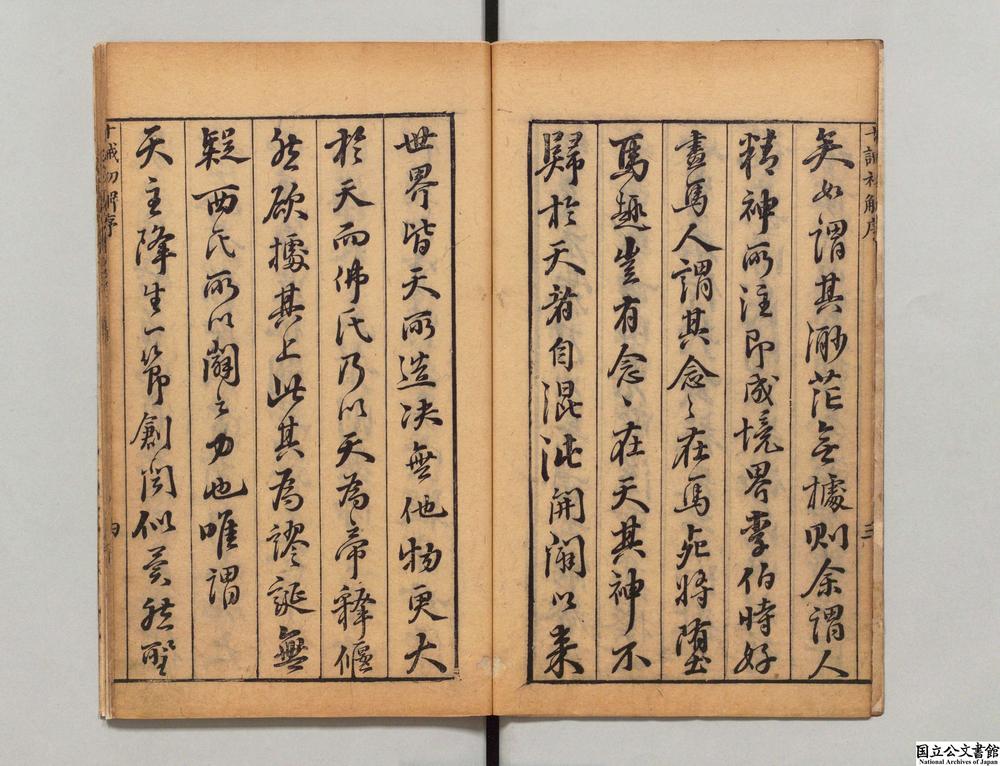 十誡初解序
三
矣如謂其渺茫無據則余謂人
精神所注即成境界李伯時好
畫馬人謂其念〻在馬死將墮
馬趣豈有念〻在天其神不
歸於天者自混沌開闢以來
世界皆天所造決無他物更大
於天而佛氏乃以天為帝釋偃
然欲據其上此其為謬誕無
疑西氏所以闢之力也唯謂
天主降生一節創聞似異然聖
十誡初解序
四
国立公文書館
National Archives of Japan